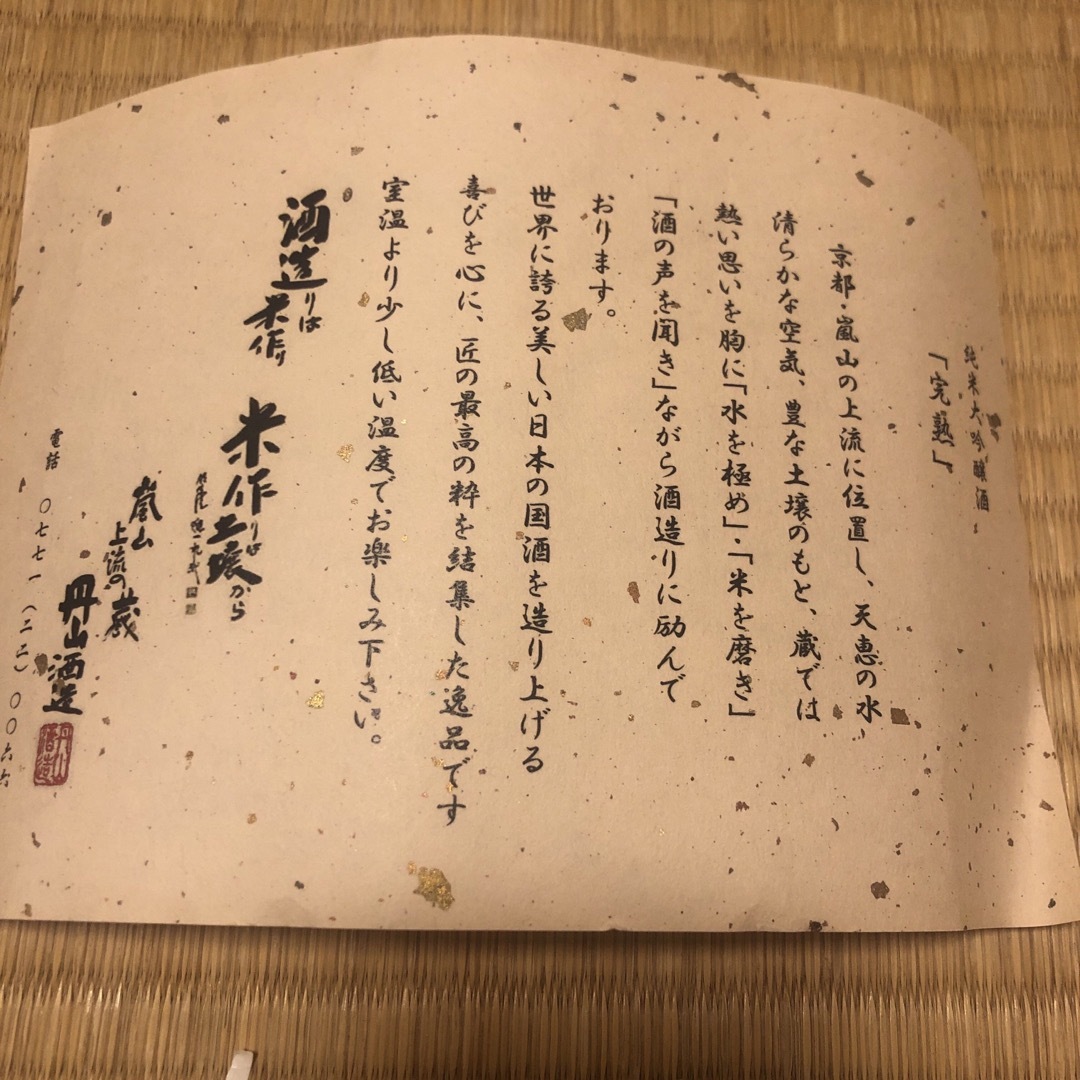 純米大吟醸酒
「完熟」
京都・嵐山の上流に位置し、天恵の水
清らかな空気、豊な土壌のもと、蔵では
熱い思いを胸に「水を極め」・「米を磨き」
「酒の声を聞き」ながら酒造りに励んで
おります。
世界に誇る美しい日本の国酒を造り上げる
喜びを心に、匠の最高の粋を結集した逸品です
室温より少し低い温度でお楽しみ下さい。
酒造りは米作り
米作りは土壌から
嵐山
上流の蔵
丹山酒造
丹山酒造
電話 〇七七一(二二)〇〇六六